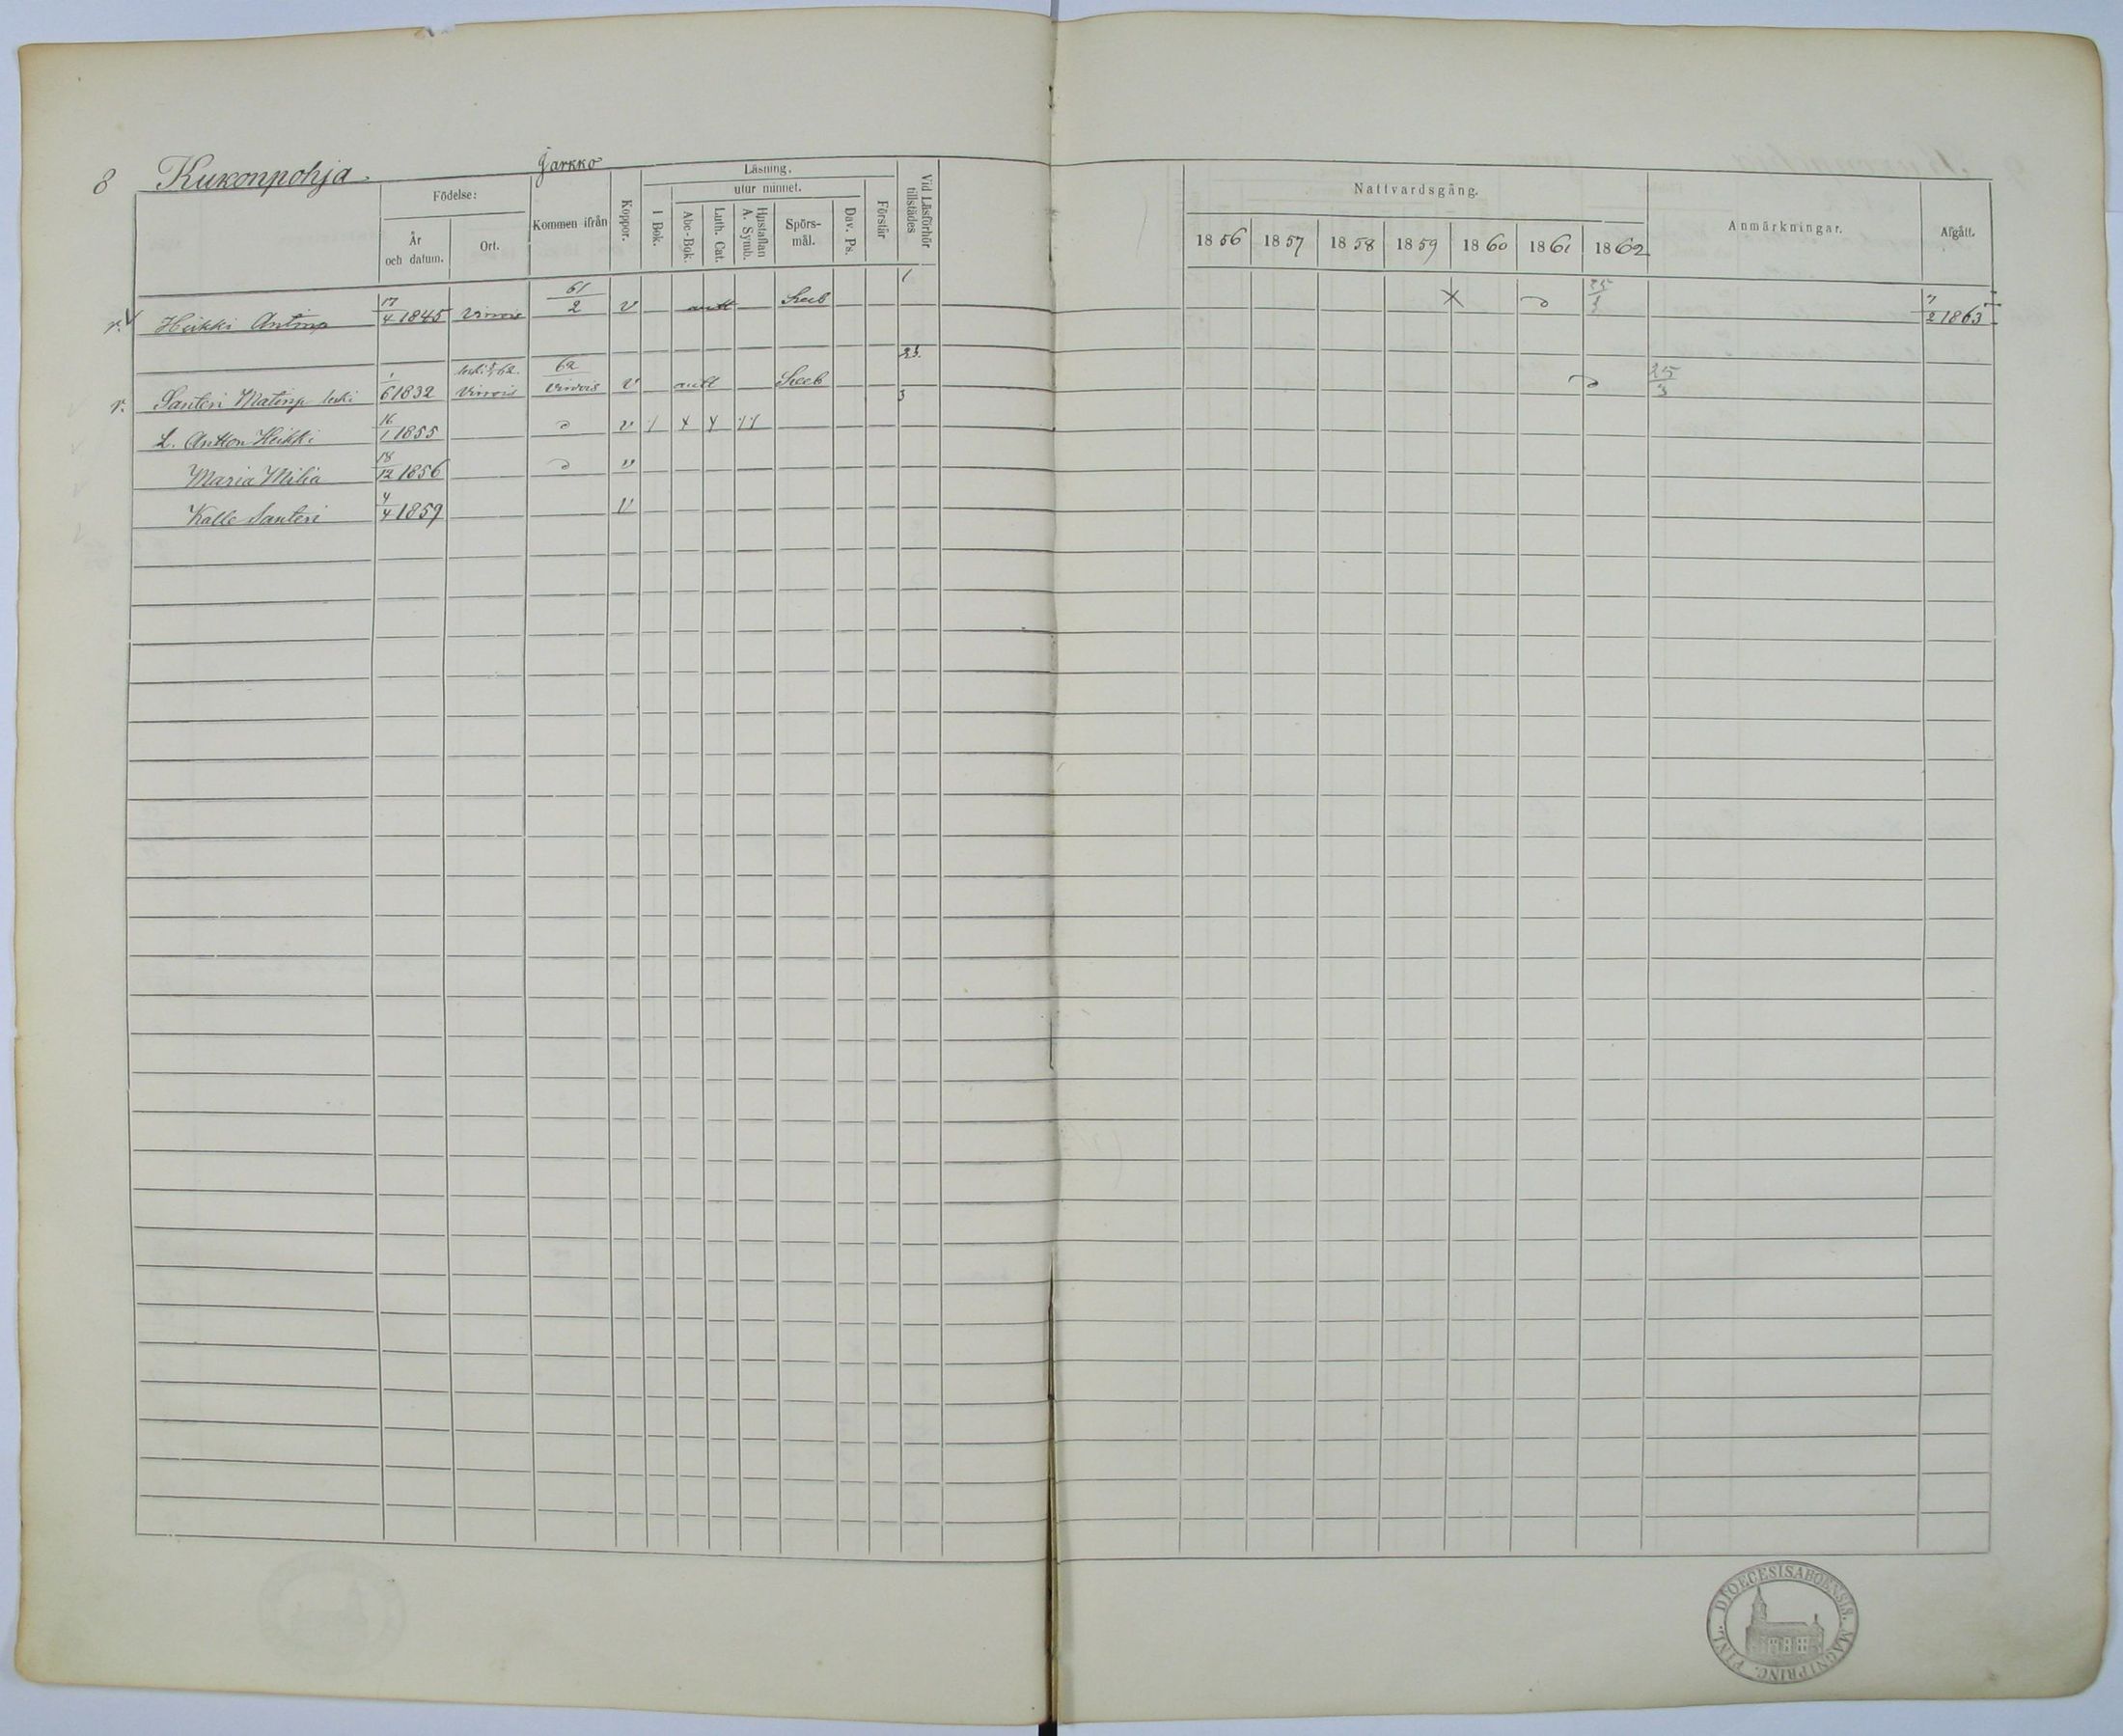 8 Kukonpohja. Jarkko
Födelse:
År och datum.
Ort.
Kommen ifrån
Koppor.
Läsning.
I Bok.
utur minnet.
Abc-Bok.
Luth. Cat.
Hustaflan A. Symb.
Spörs-mål.
Dav. Ps.
Förstår
Vid Läsförhör tillstädes
Nattvardsgång.
1856 1857 1858 1859 1860 1861 1862
Anmärkningar.
Afgått.
r. v Heikki Antinp 17/4 1845 Virrois 61/2 v 1 X 7/2 1863
r. Santeri Matinp leski 1/6 1832 Virrois 62 Virrois v 25/3
L. Antton Heikki 16/1 1855 v
Maria Milia 18/12 1856 v
Kalle Santeri 4/4 1859 v
DIOECESIS ABOENSIS. MAGNI PRINC. FINL.